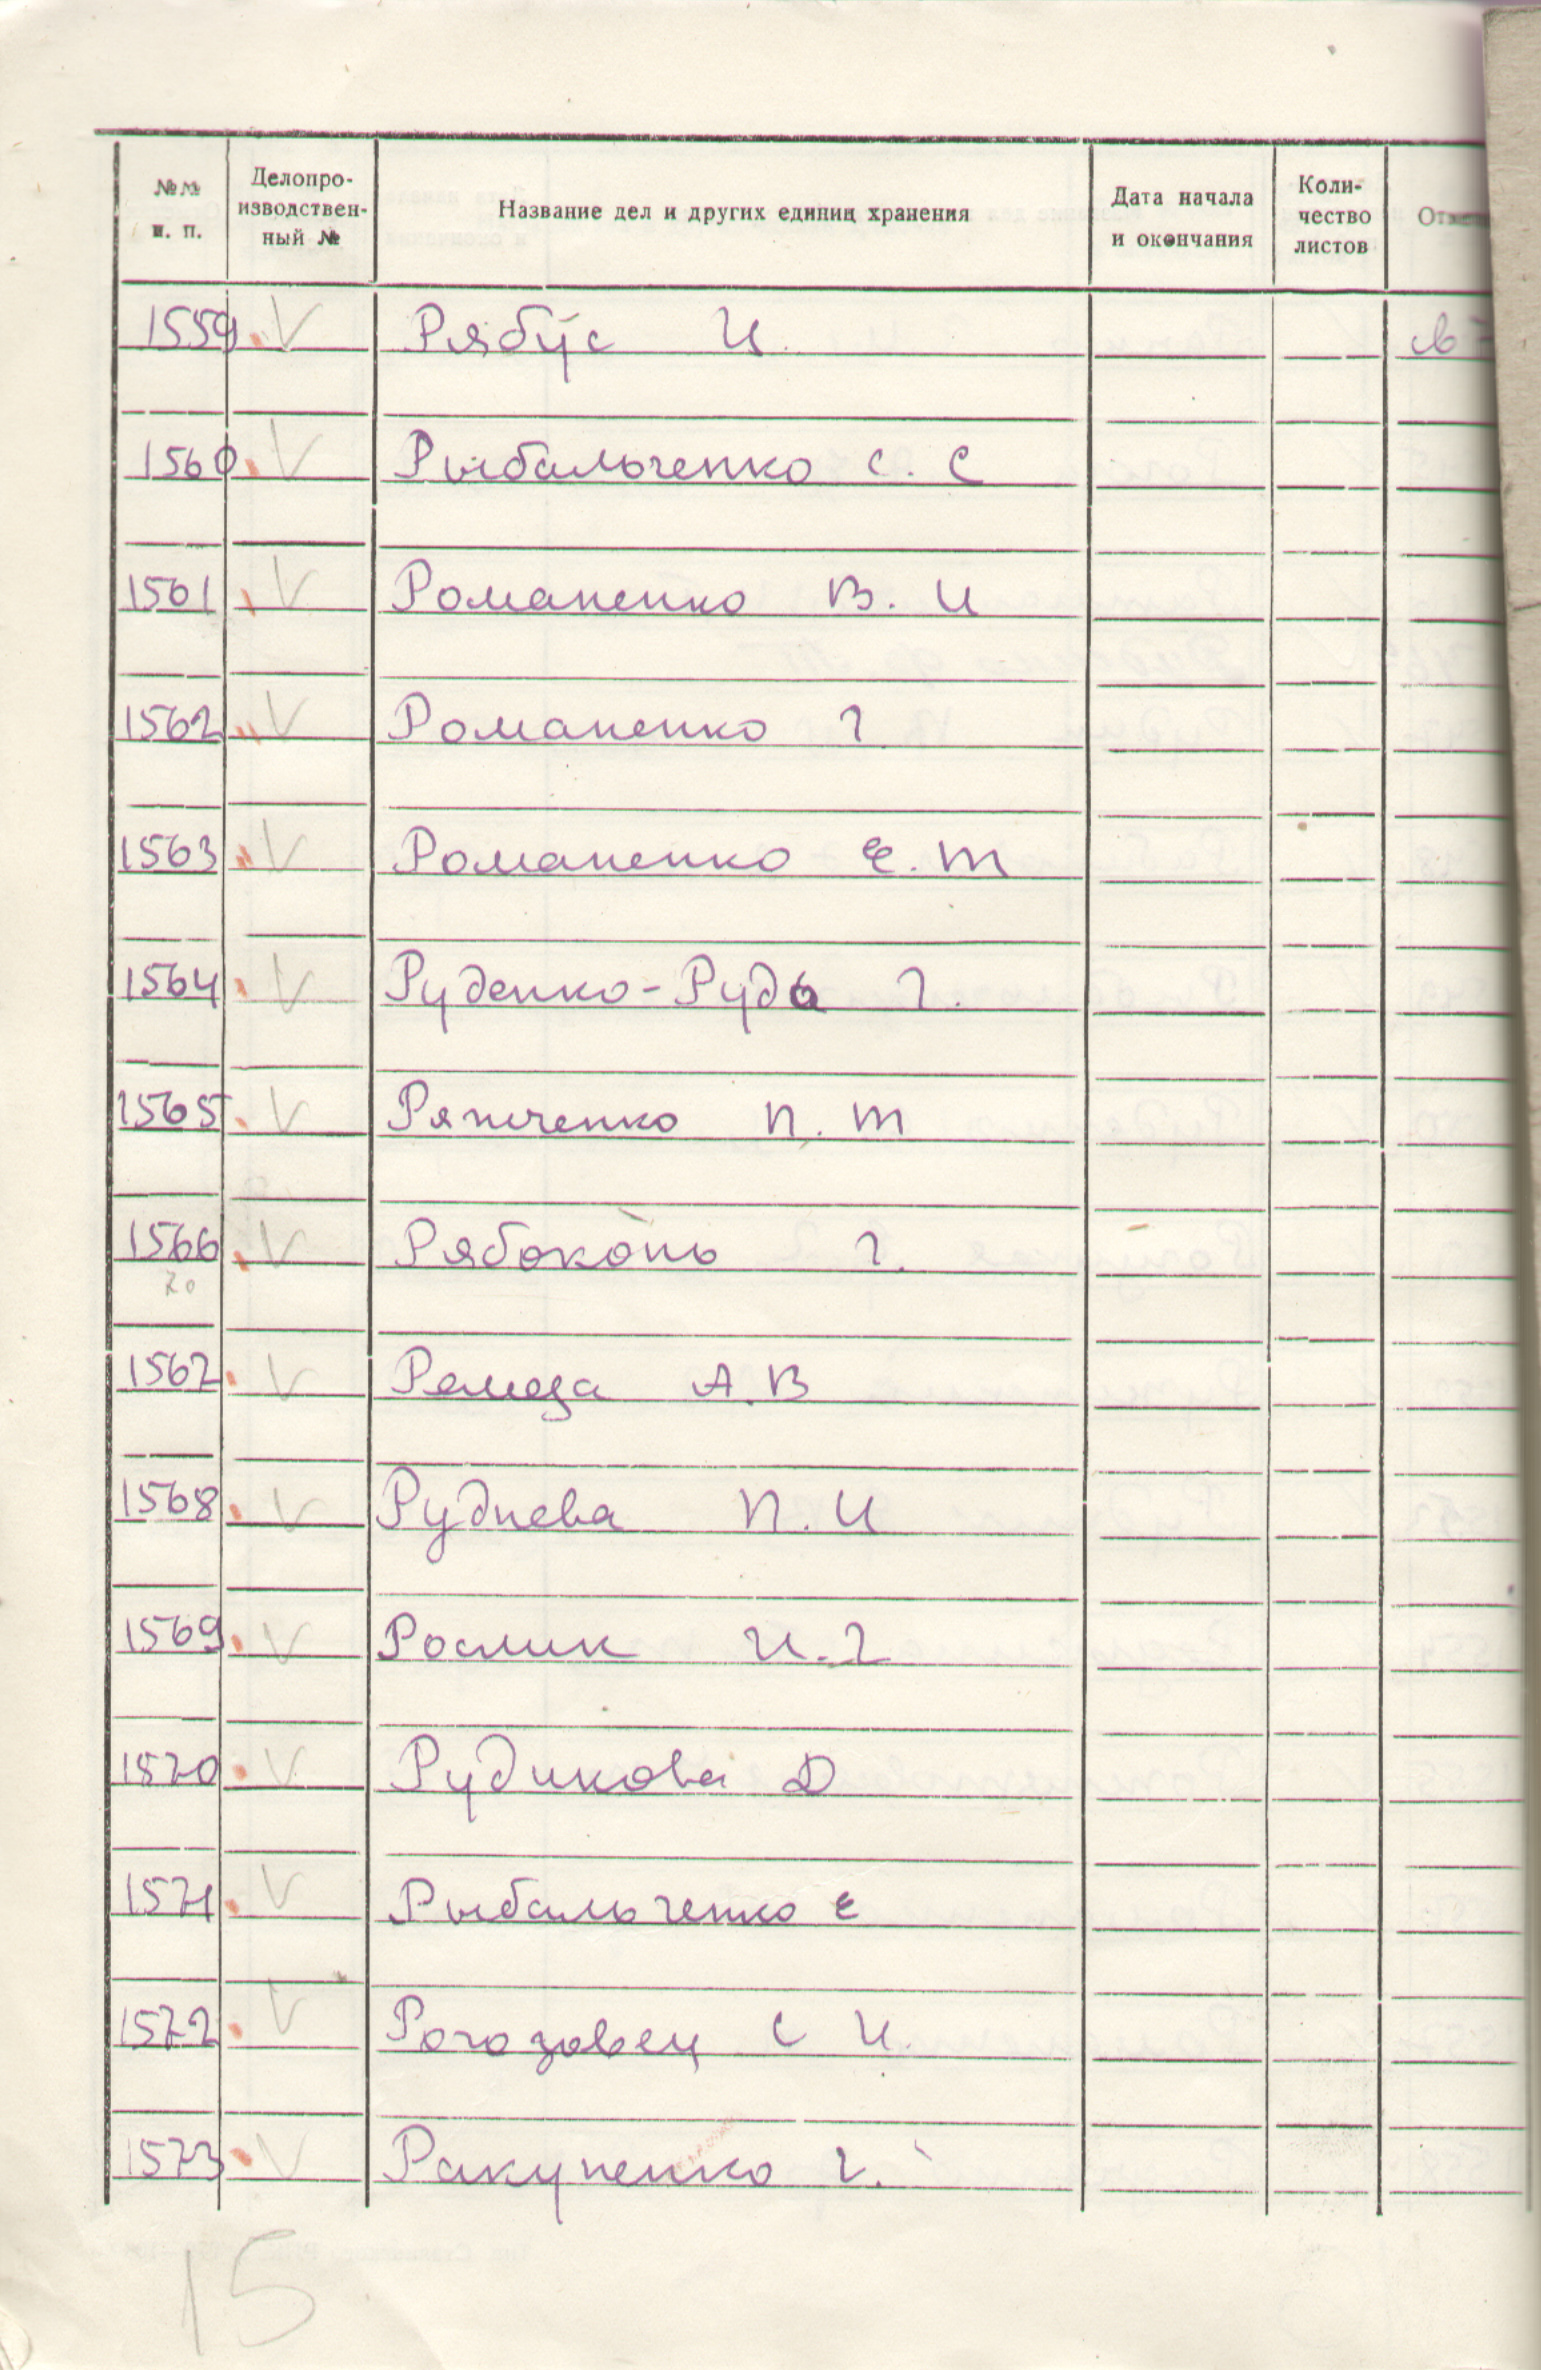 №№ п. п. Делопро-изводствен-ный № Название дел и других единиц хранения Дата начала и окончания Коли-чество листов
1559 V Рябус И.
1560 V Рыбальченко С. С
1561 V Романенко В. И
1562 V Романенко Г
1563 V Романенко Е. Т
1564 V Руденко-Рудь Г.
1565 V Ряпченко П. Т
1566 V Рябоконь Г.
70
1567 V Ремеза А.В
1568 V Руднева П. И
1569 V Рослик И. Г
1570 V Рудикова Д
1571 V Рыбальченко Е
1572 V Рогозовец С И.
1573 V Ракупенко Г.
15